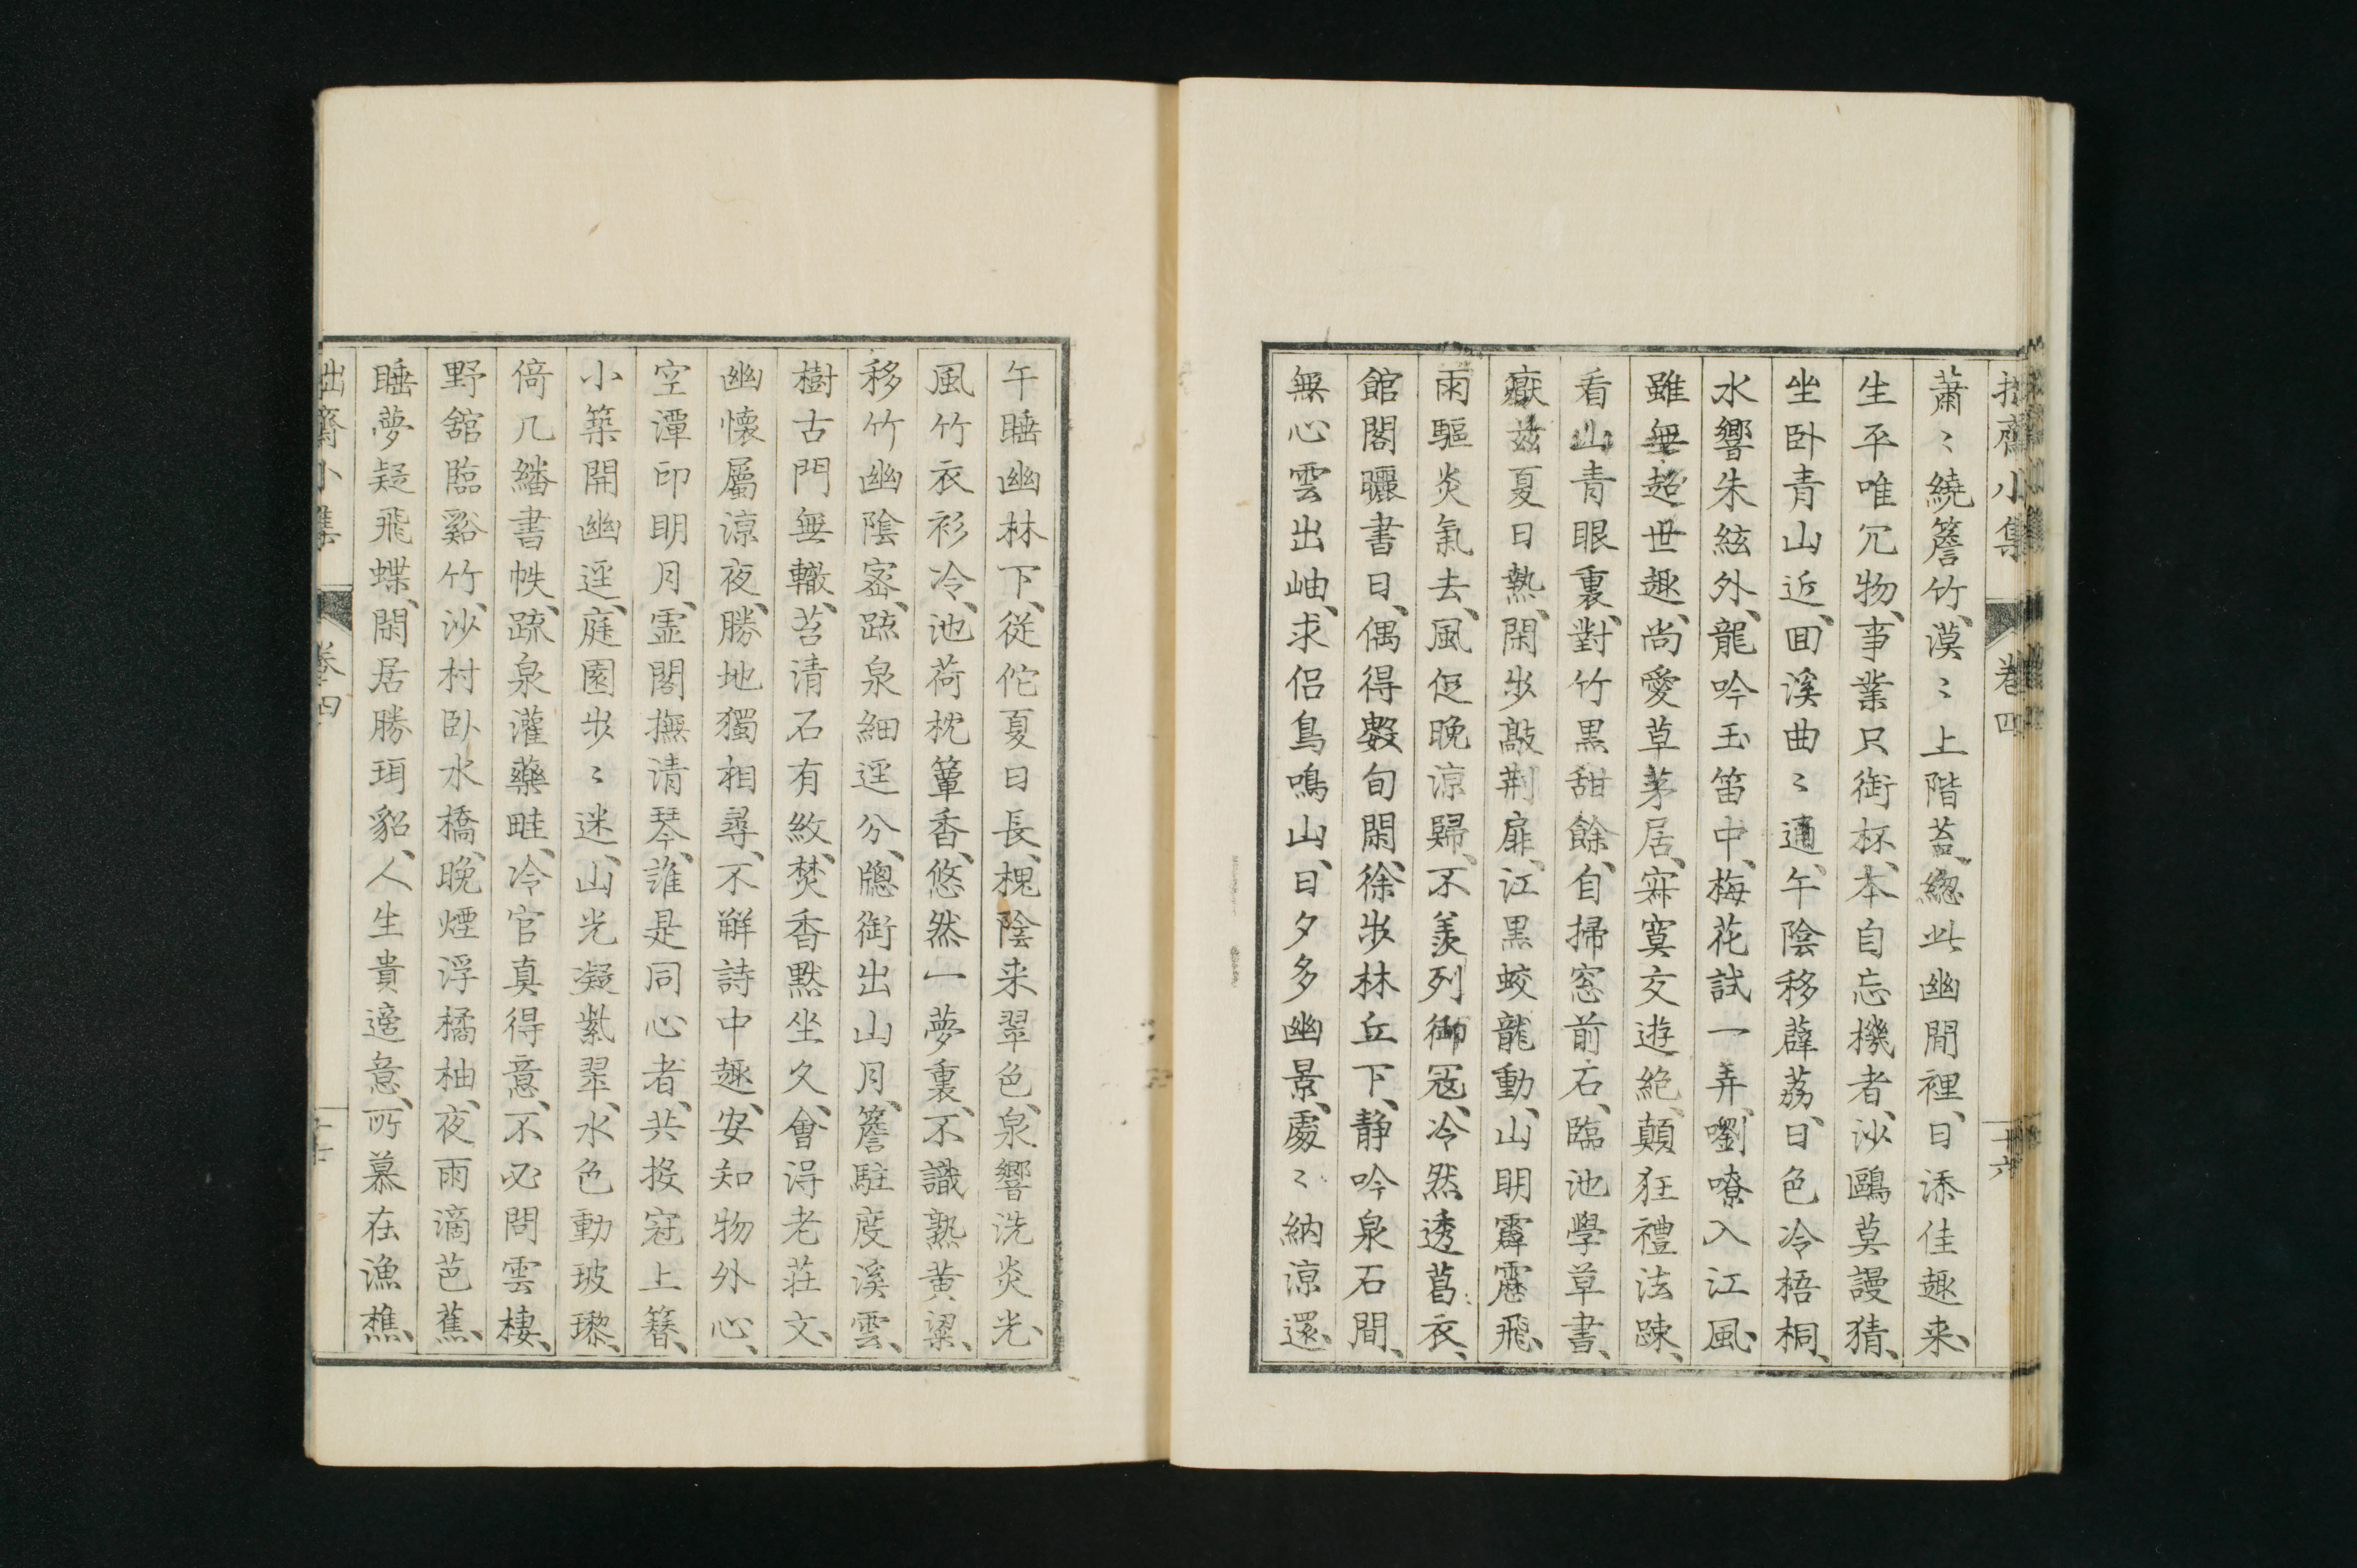 拙齋小集 卷四 十六
蕭〻繞簷竹、漠〻上階苔、緫此幽閒裡、日添佳趣来、
生平唯冗物、事業只銜杯、本自忘機者、沙鷗莫謾猜、
坐卧青山近、囬溪曲〻通、午陰移薜荔、日色冷梧桐、
水響朱絃外、龍吟玉笛中、梅花試一弄、嚠嘹入江風、
雖無超世趣、尚愛草茅居、寂寞交遊絶、顛狂禮法踈、
看山青眼裏、對竹黒甜餘、自掃窓前石、臨池學草書、
厭茲夏日熱、閑歩敲荆扉、江黒蛟龍動、山明霹靂飛、
雨驅炎氣去、風促晩涼歸、不羨列御冦、冷然透葛衣、
館閣曬書日、偶得數旬閑、徐歩林丘下、静吟泉石間、
無心雲出岫、求侣鳥鳴山、日夕多幽景、處〻納涼還、
午睡幽林下、従佗夏日長、槐陰来翠色、泉響洗炎光、
風竹衣衫冷、池荷枕簟香、悠然一夢裏、不識熟黄粱、
移竹幽陰密、䟽泉細逕分、牕銜出山月、簷駐度溪雲、
樹古門無轍、苔清石有紋、焚香黙坐久、會淂老莊文、
幽懷屬涼夜、勝地獨相尋、不觧詩中趣、安知物外心、
空潭印明月、霊閣撫清琴、誰是同心者、共投冠上簪、
小築開幽逕、庭園歩〻迷、山光凝紫翠、水色動玻瓈、
倚几繙書帙、疏泉灌藥畦、冷官真得意、不必問雲棲、
野舘臨谿竹、沙村卧水橋、晩煙浮橘柚、夜雨滴芭蕉、
睡夢疑飛蝶、閑居勝珥貂、人生貴適意、所慕在漁樵、
拙齋小集 卷四 十七